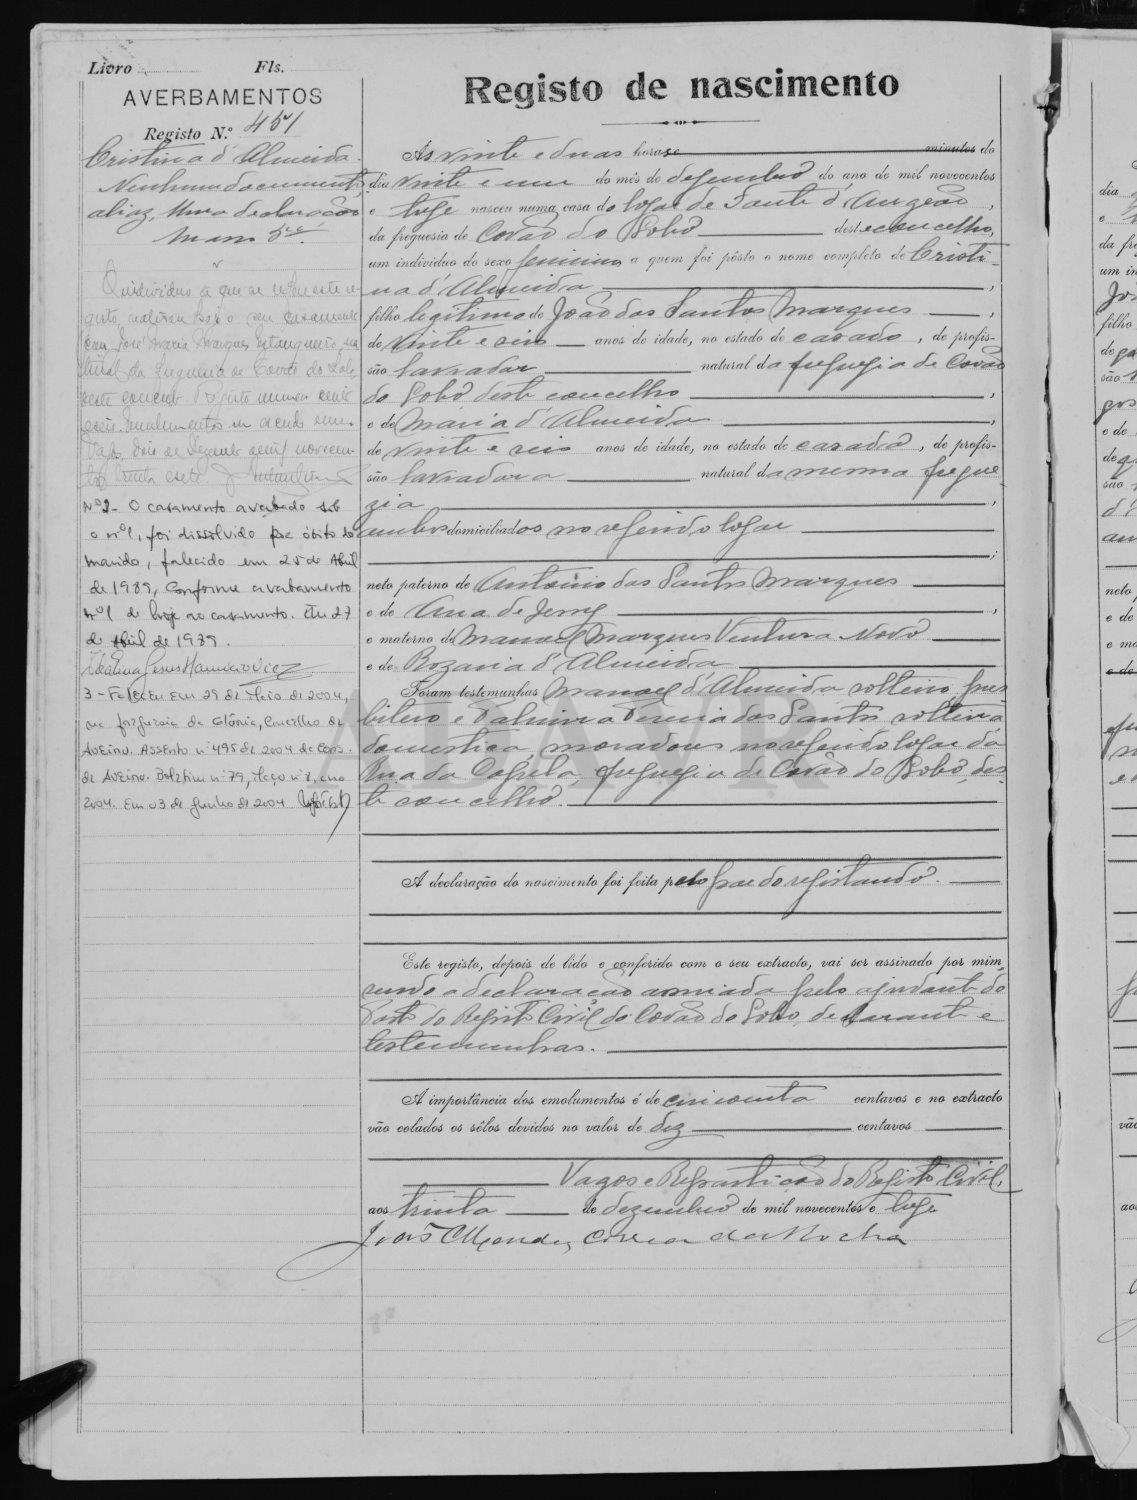 Livro Fls.
AVERBAMENTOS
Registo N.º 451
Cristina d'Almeida
Nenhum documento,
aliaz, uma declaração
Maço 5.º
O individuo a que se refere este re-
gisto, contraiu hoje o seu casamento
com José Maria Marques Estanqueiro, na-
tural da freguesia de Covão do Lobo
deste concelho. Registo numero cento
e seis. Emolumentos um escudo
Vagos, dois de Dezembro de mil novecen-
tos trinta e sete.
Nº 2 - O casamento averbado sob
o nº 1, foi dissolvido por óbito do
marido, falecido em 25 de Abril
de 1989, conforme averbamento
nº 1 de hoje ao casamento. Em 27
de Abril de 1989.
3 - Faleceu em 29 de Maio de 2004,
na freguesia da Glória, Concelho de
Aveiro. Assento nº 495 de 2004 da Cons.
de Aveiro. Boletim nº 79, Maço nº 8, ano
2004. Em 03 de Junho de 2004
Registo de nascimento
Ás vinte e duas horas e minutos do
dia vinte e um do mês de dezembro do ano de mil novecentos
e treze nasceu numa casa do logar de Fonte d'Angeão,
da freguesia de Covão do Lobo deste concelho,
um individuo do sexo feminino a quem foi pôsto o nome completo de Cristi-
na d'Almeida,
filho legitimo de João dos Santos Marques,
de vinte e seis anos de idade, no estado de casado, de profis-
são lavrador natural da freguezia de Covão
do Lobo deste concelho,
e de Maria d'Almeida,
de vinte e seis anos de idade, no estado de casada, de profis-
são lavradora natural da mesma fregue-
zia,
ambos domiciliados no referido logar
;
neto paterno de Antonio dos Santos Marques
e de Ana de Jesus,
e materno de Manoel Marques Ventura Novo
e de Rozaria d'Almeida
Foram testemunhas Manoel d'Almeida solteiro, pres-
bitero e Palmira Pereira dos Santos solteira
domestica, moradores no referido logar da
Rua da Capela, freguezia de Covão do Lobo, des-
te concelho.
A declaração do nascimento foi feita pelo pae do registando.
Este registo, depois de lido e conferido com o seu extracto, vai ser assinado por mim,
sendo a declaração assinada pelo ajudante do
Posto do Registo Civil do Covão do Lobo, declarante e
testemunhas.
A importância dos emolumentos é de cincoenta centavos e no extracto
vão colados os sêlos devidos no valor de dez centavos
Vagos e Repartição do Registo Civil,
aos trinta de dezembro de mil novecentos e treze
João Mendes Correia da Rocha
ADAVR